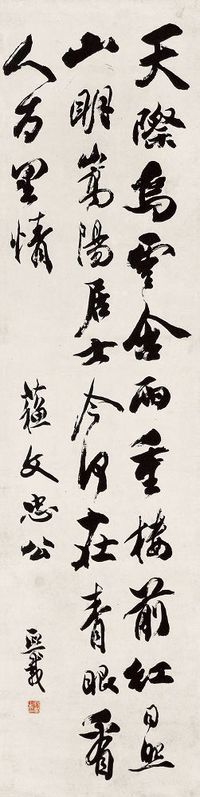 天際烏雲含雨重樓前紅日照
山明嵩陽居士今何在青眼看
人万里情
蘇文忠公
熙載